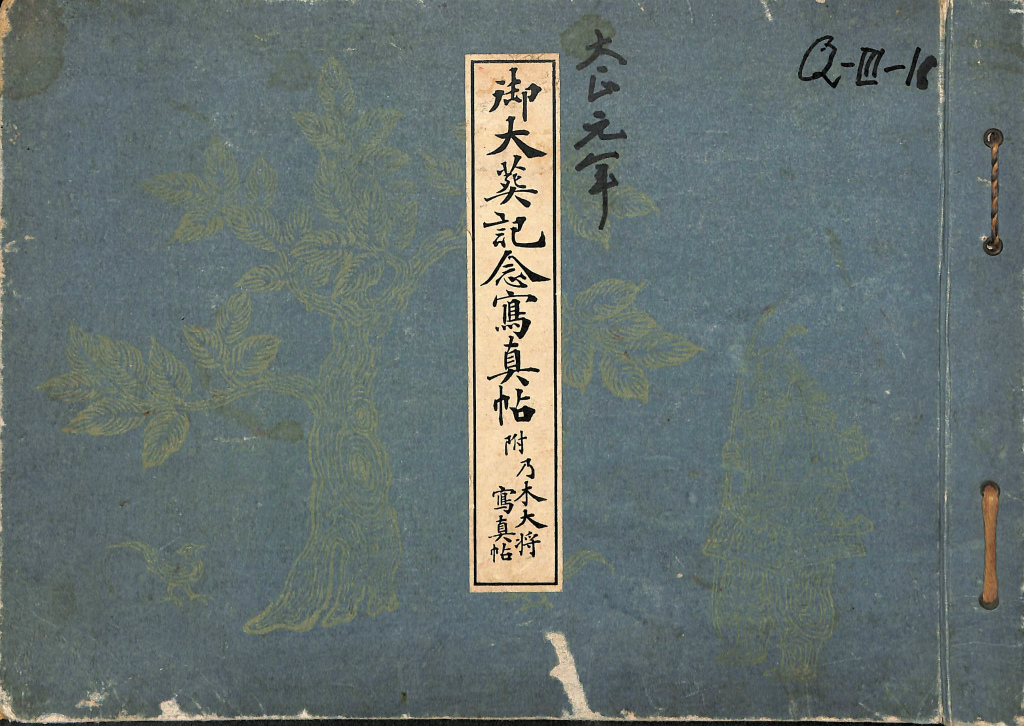 Q-III-18
大正元年
御大葬記念寫真帖
附
乃木大将
寫真帖